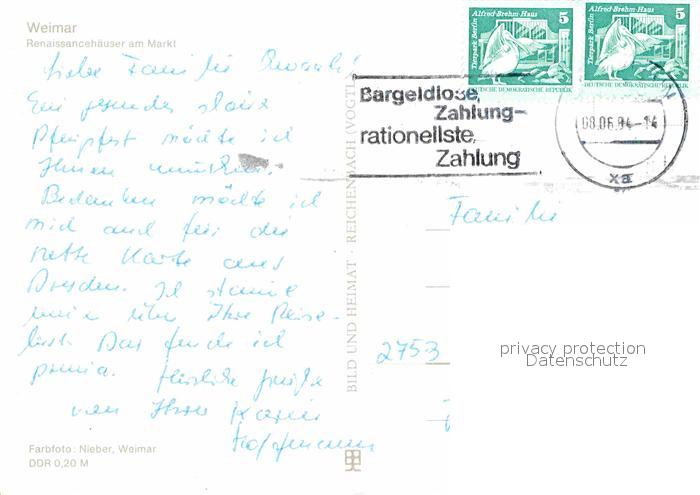 Weimar
Renaissancehäuser am Markt
Liebe Familie
Ein gesundes
Pfingstfest möchte ich
Ihnen wünschen.
Bedanken möchte ich
mich auch für die
nette Karte aus
Dresden. Ich staune
immer über Ihre Reise-
lust. Das finde ich
prima. Herzliche Grüße
von Ihrer Karin
Hoffmann
Farbfoto: Nieber, Weimar
DDR 0,20 M
BILD UND HEIMAT · REICHENBACH (VOGTL
Tierpark Berlin
Alfred-Brehm-Haus
5
DEUTSCHE DEMOKRATISCHE REPUBLIK
Tierpark Berlin
Alfred-Brehm-Haus
5
DEUTSCHE DEMOKRATISCHE REPUBLIK
Bargeldlose
Zahlung-
rationellste
Zahlung
08.06.84-14
xa
Familie
2753
privacy protection
Datenschutz